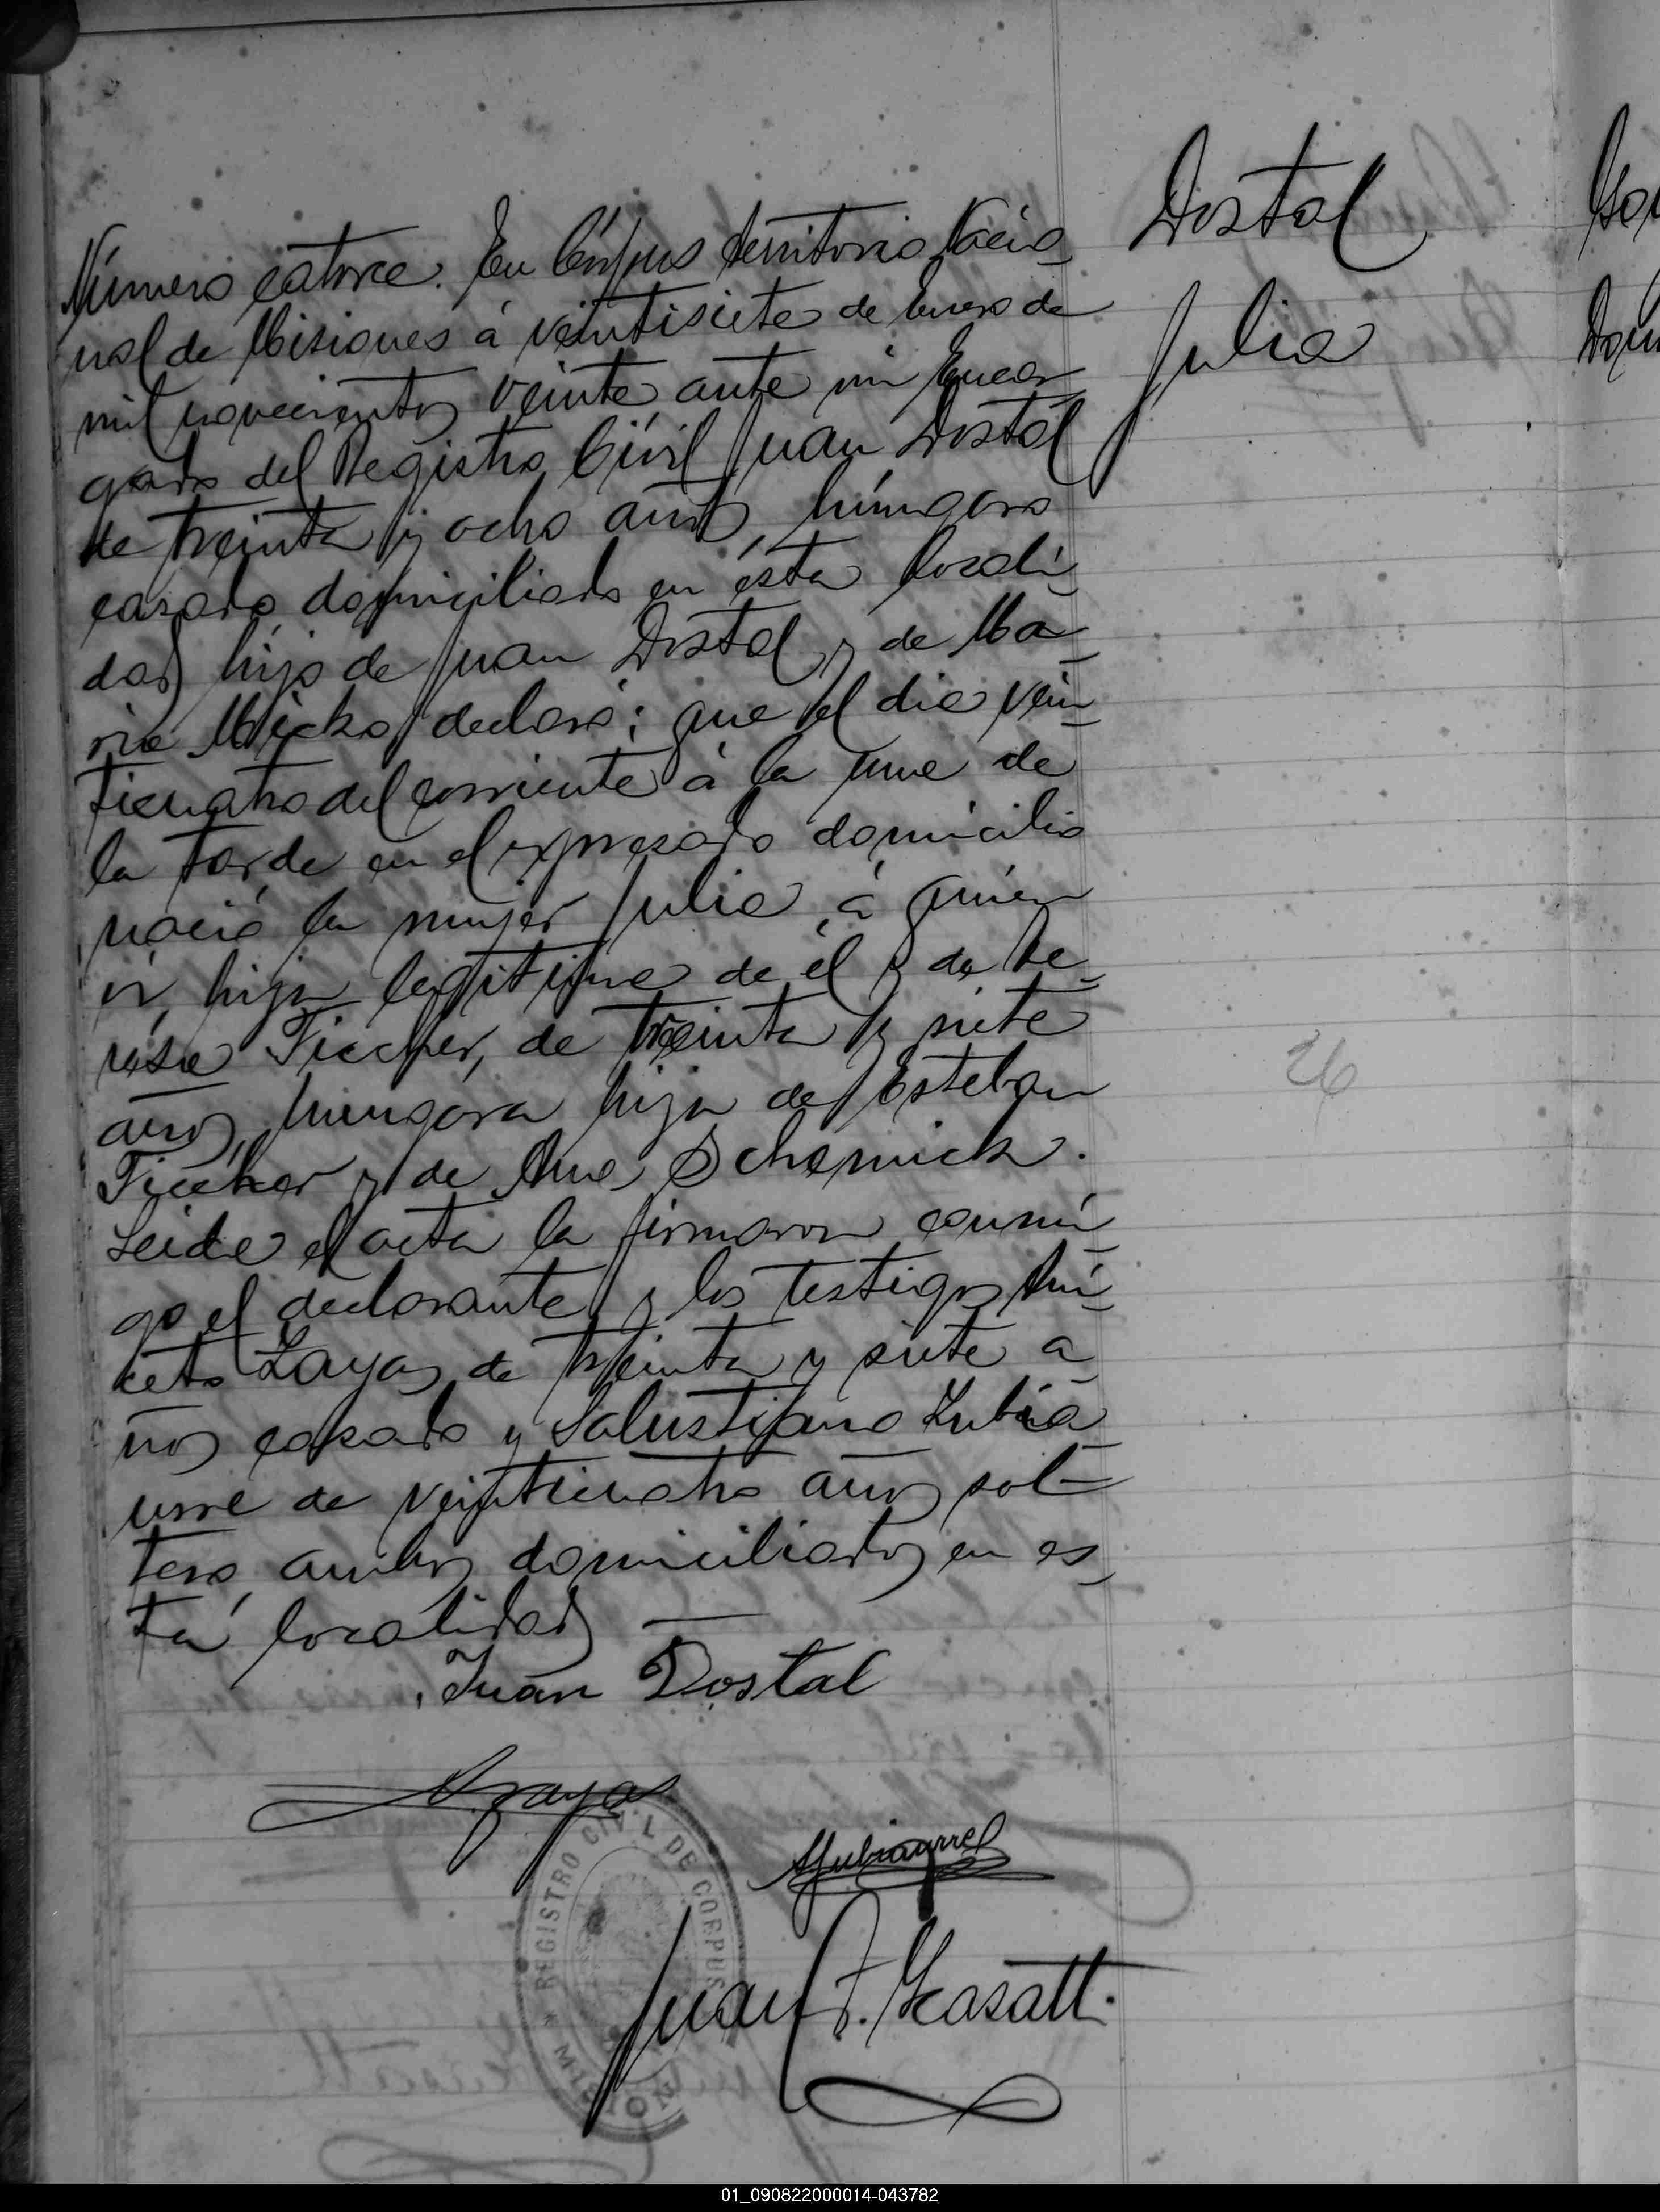 Dostal
Julia
Número catorce. En Córpus Territorio Nacio-
nal de Misiones á veintisiete de Enero de
mil novecientos veinte ante mi Encar-
gado del Registro Civil Juan Dostal
de treinta y ocho años, húngaro
casado domiciliado en ésta locali-
dad hijo de Juan Dostal y de Ma-
ria Micka declaró: que el dia vein-
ticuatro del corriente á la una de
la tarde en el expresado domicilio
nació la mujer Julia á quien
vi, hija legitima de él y de Te-
resa Ticcher, de treinta y siete
años, hungara hija de Esteban
Ticcher y de Ana Schamick.
Leida el acta la firmaron conmi-
go el declarante y los testigos Ani-
ceto Zayas de treinta y siete a-
ños casado y Salustiano Zubia-
urre de veinticuatro años sol-
tero ambos domiciliados en es-
ta localidad —
Juan Dostal
AZayas
SZubiaurre
Juan F.
REGISTRO CIVIL DE CORPUS
* MISIONES
26
01_090822000014-043782